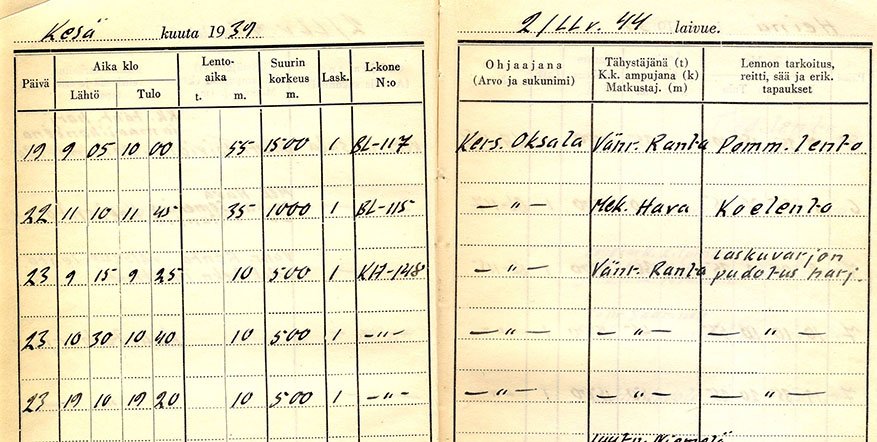 Kesä kuuta 1939
Päivä Aika klo Lento-aika Suurin korkeus m. Lask. L-kone N:o
Lähtö Tulo t. m.
19 9 05 10 00 55 1500 1 BL-117
22 11 10 11 45 35 1000 1 BL-115
23 9 15 9 25 10 500 1 KH-148
23 10 30 10 40 10 500 1 —"—
23 19 10 19 20 10 500 1 —"—
2/LLv. 44 laivue.
Ohjaajana (Arvo ja sukunimi) Tähystäjänä (t) K.k. ampujana (k) Matkustaj. (m) Lennon tarkoitus, reitti, sää ja erik. tapaukset
Kers. Oksala Vänr. Ranta Pomm. lento
—"— Mek. Hava Koelento
—"— Vänr. Ranta laskuvarjon pudotus harj.
—"— —"— —"—
—"— —"— —"—
Niemelä